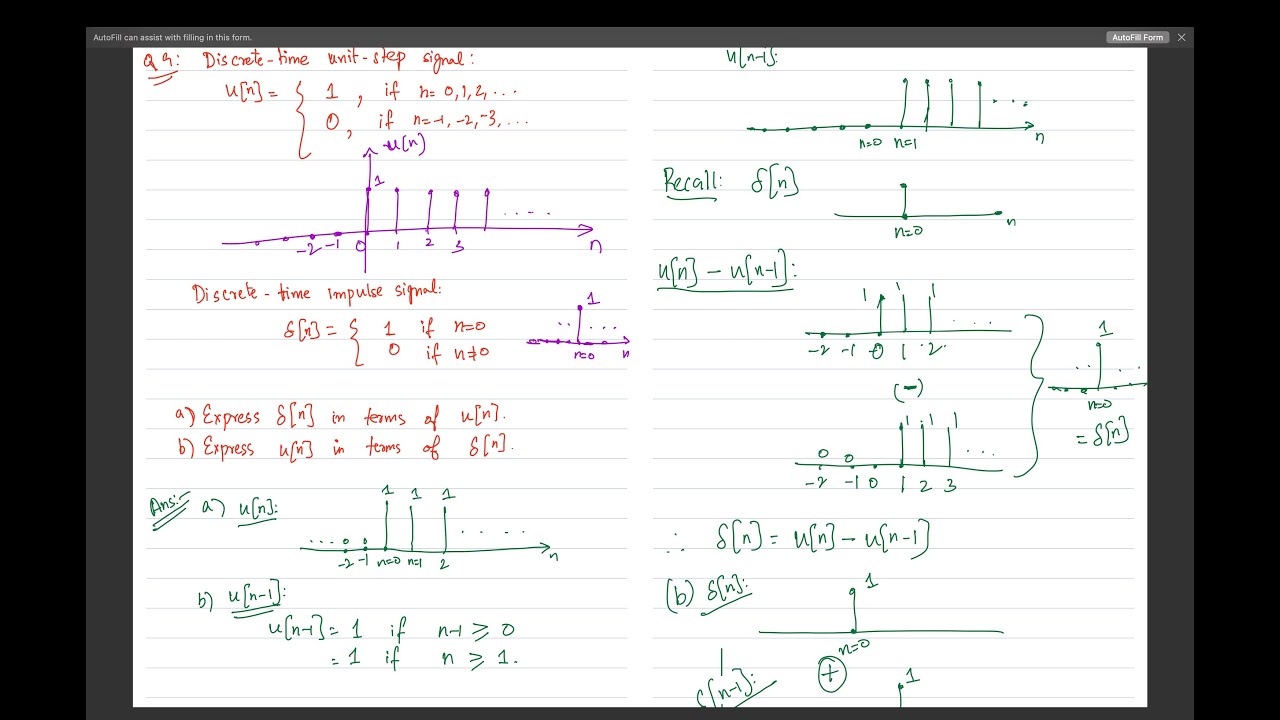 AutoFill can assist with filling in this form.
AutoFill Form
Q 9: Discrete-time unit-step signal:
u[n] = { 1 , if n= 0,1,2, ...
0 , if n=-1,-2,-3, ...
u[n]
1
-2 -1 0 1 2 3 n
Discrete-time impulse signal:
δ[n] = { 1 if n=0
0 if n≠0
1
n=0 n
a) Express δ[n] in terms of u[n].
b) Express u[n] in terms of δ[n].
Ans:- a) u[n]:
1 1 1
-2 -1 n=0 n=1 2 n
b) u[n-1]:
u[n-1] = 1 if n-1 ⩾ 0
= 1 if n ⩾ 1.
u[n-1]:
n=0 n=1 n
Recall: δ[n]
n=0 n
u[n] - u[n-1]:
1 1 1
-2 -1 0 1 2
(-)
0 0 1 1 1
-2 -1 0 1 2 3
1
n=0
= δ[n]
∴ δ[n] = u[n] - u[n-1]
(b) δ[n]:
1
n=0
+
[n-1]:
1